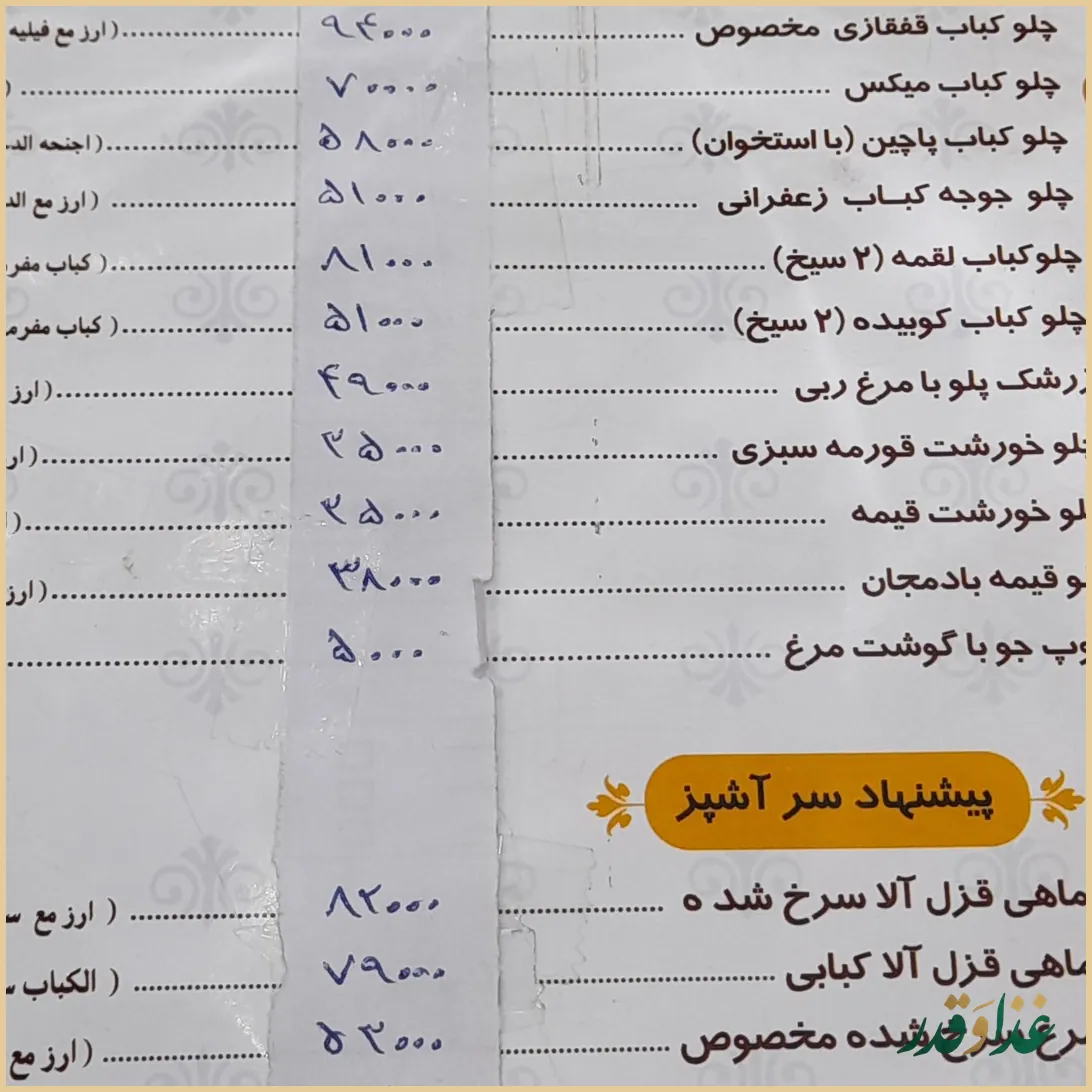 چلو کباب قفقازی مخصوص ........ ۹۴۰۰۰ ........( ارز مع فیلیه
چلو کباب میکس ........ ۷۰۰۰۰ ........ (
چلو کباب پاچین (با استخوان) ........ ۵۸۰۰۰ ........( اجنحه الد
چلو جوجه کباب زعفرانی ........ ۵۱۰۰۰ ........ ( ارز مع الد
چلوکباب لقمه (۲ سیخ) ........ ۸۱۰۰۰ ........( کباب مفر
چلو کباب کوبیده (۲ سیخ) ........ ۵۱۰۰۰ ........( کباب مفرم
زرشک پلو با مرغ ربی ........ ۴۹۰۰۰ ........( ارز
لو خورشت قورمه سبزی ........ ۳۵۰۰۰ ........( ار
لو خورشت قیمه ........ ۳۵۰۰۰ ........( ا
و قیمه بادمجان ........ ۳۸۰۰۰ ........( ارز
وپ جو با گوشت مرغ ........ ۵۰۰۰ ........
پیشنهاد سر آشپز
ماهی قزل آلا سرخ شد ه ........ ۸۲۰۰۰ ........ ( ارز مع س
ماهی قزل آلا کبابی ........ ۷۹۰۰۰ ........ ( الکباب س
رغ سرخ شده مخصوص ........ ۵۳۰۰۰ ........ ( ارز مع
غذا و قدر